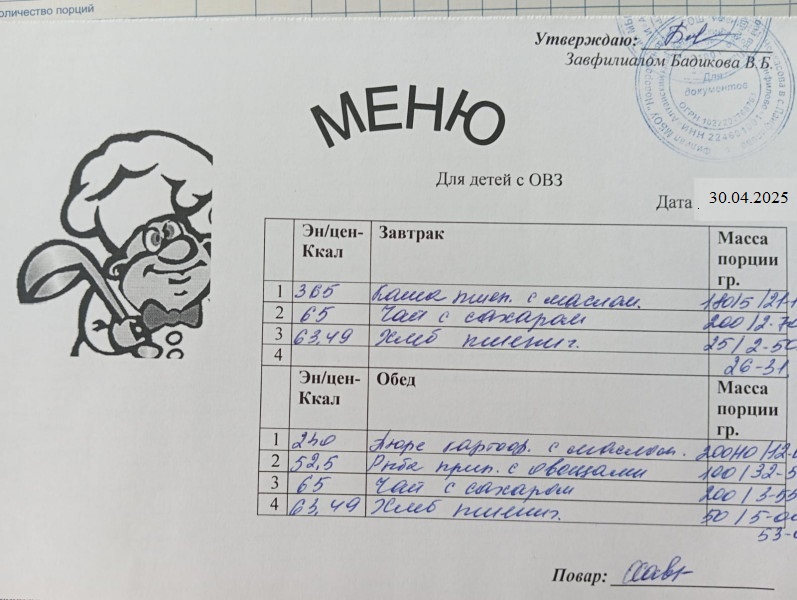 количество порций
Утверждаю:
Завфилиалом Бадикова В.Б.
Для документов
МЕНЮ
Для детей с ОВЗ
Дата 30.04.2025
Эн/цен- Ккал Завтрак Масса порции гр.
1 365 Каша пшен. с маслом. 180/5/21-1
2 65 Чай с сахаром 200/2-70
3 63,49 Хлеб пшениг. 25/2-50
4 26-31
Эн/цен- Ккал Обед Масса порции гр.
1 240 Пюре картоф. с маслом. 200/10/12-0
2 52,5 Рыба прип. с овощами 100/32-5
3 65 Чай с сахаром 200/3-55
4 63,49 Хлеб пшениг. 50/5-00
53-0
Повар: